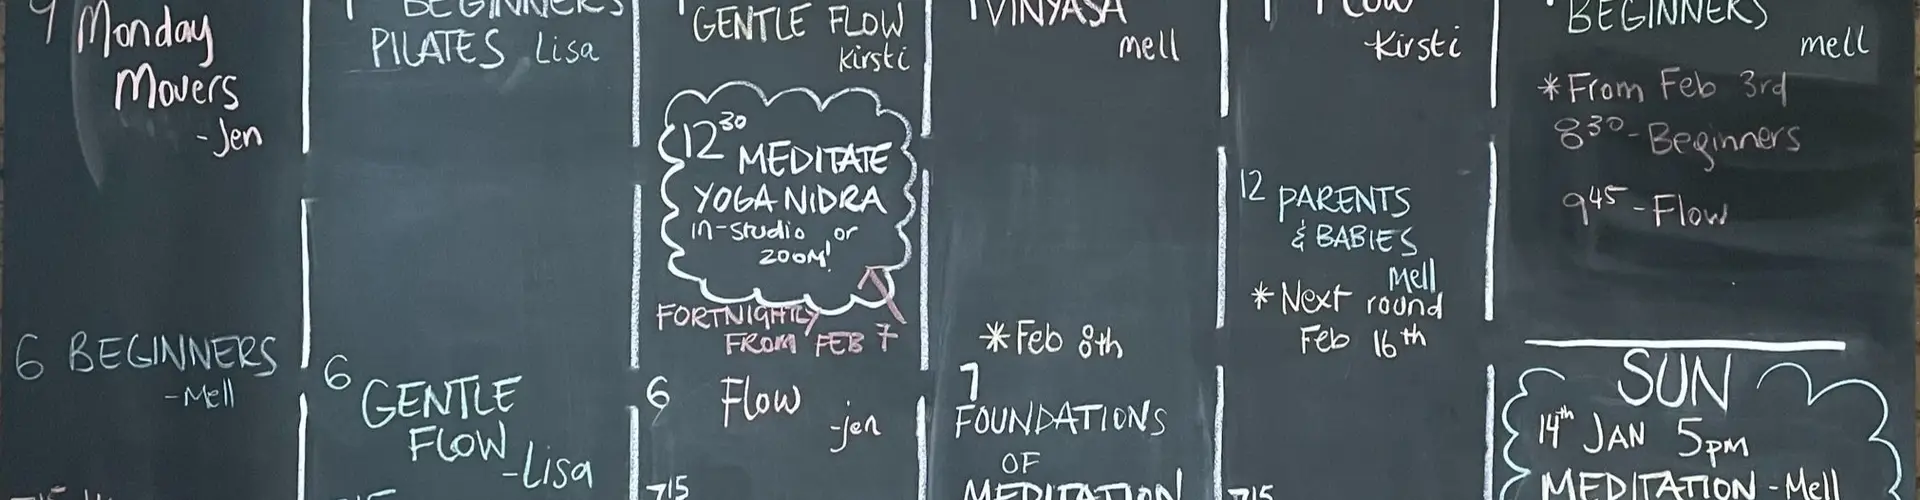 9 Monday
Movers
-Jen
6 BEGINNERS
-Mell
BEGINNERS
PILATES Lisa
6 GENTLE
FLOW
-Lisa
GENTLE FLOW
Kirsti
12³⁰ MEDITATE
YOGA NIDRA
in-studio or
ZOOM!
FORTNIGHTLY
FROM FEB 7
6 Flow
-jen
7¹⁵
VINYASA
mell
*Feb 8th
7
FOUNDATIONS
OF
MEDITATION
FLOW
Kirsti
12 PARENTS
& BABIES
Mell
*Next round
Feb 16th
7¹⁵
BEGINNERS
mell
*From Feb 3rd
8³⁰-Beginners
9⁴⁵-Flow
SUN
14th JAN 5PM
MEDITATION-Mell